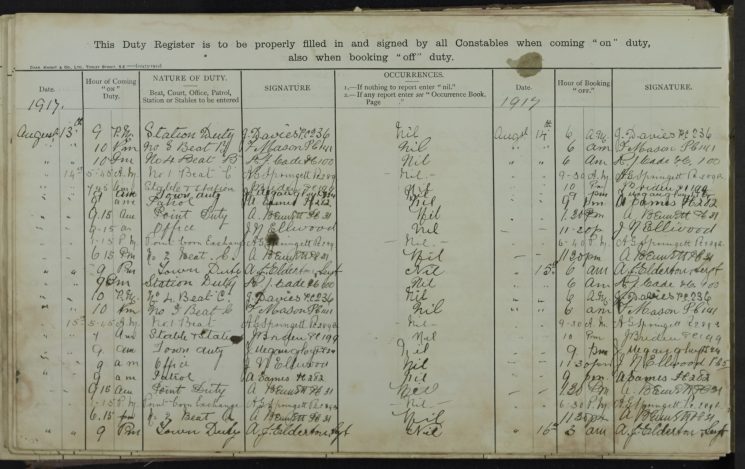 This Duty Register is to be properly filled in and signed by all Constables when coming "on" duty,
also when booking "off" duty.
Date. Hour of Coming "on" Duty. NATURE OF DUTY. Beat, Court, Office, Patrol, Station or Stables to be entered SIGNATURE OCCURRENCES. 1.—If nothing to report enter "nil." 2.—If any report enter see "Occurrence Book, Page Date. Hour of Booking "off." SIGNATURE.
1917. 1917
August 13th 9 P.M. Station Duty J. Davies PC 236 Nil August 14th 6 A.M. J. Davies PC 236
10 Pm No 3 Beat B J Mason P6141 Nil 6 am J Mason P6141
10 Pm No 4 Beat B A J Cade 100 Nil 6 Am A J Cade 100
14th 5-45 A.M. No 1 Beat C A.G. Springett Nil 9-30 A.M. A.G. Springett
7 Stable & Station Nil 10 Pm J Briden PC 199
9 am Town duty Nil 9 pm
9 am Patrol A Eames 282 Nil 9 pm A Eames 282
9.15 Am Point Duty A. Bennett 31 Nil A Bennett 31
9-15 am Office J N Ellwood Nil 11-20 p J N Ellwood
1-15 P.M. Point Exchange A.G. Springett Nil 6-40 P.M. A.G. Springett
6.15 Pm No 2 Beat C. A Bennett 31 Nil 11.20 pm A Bennett 31
9 Pm Town Duty A J Elderton Supt Nil 15th 6 am A J Elderton Supt
9 Pm Station Duty A J Cade 100 Nil 6 Am A J Cade 100
10 P.M. No 4 Beat C. J Davies PC 236 Nil 6 A.M. J Davies PC 236
10 Pm No 3 Beat C J Mason P6141 Nil 6 am J Mason P6141
15th 5-45 A.M. No 1 Beat A.G. Springett Nil 9-30 A.M. A.G. Springett
Stable & Station J Briden PC 199 Nil 10 Pm J Briden PC 199
9 am Town duty Nil 9 pm
9 am Office J N Ellwood Nil 11.30 pm J N Ellwood
9 am Patrol A Eames 282 Nil 9 pm A Eames 282
9.15 Am Point Duty A Bennett 31 Nil A Bennett 31
1-15 P.M. Point Exchange A.G. Springett Nil 6-30 P.M. A.G. Springett
6.15 pm No 2 Beat A Bennett 31 Nil 11.20 pm A Bennett 31
9 Pm Town Duty A J Elderton Supt Nil 16th 5 am A J Elderton Supt